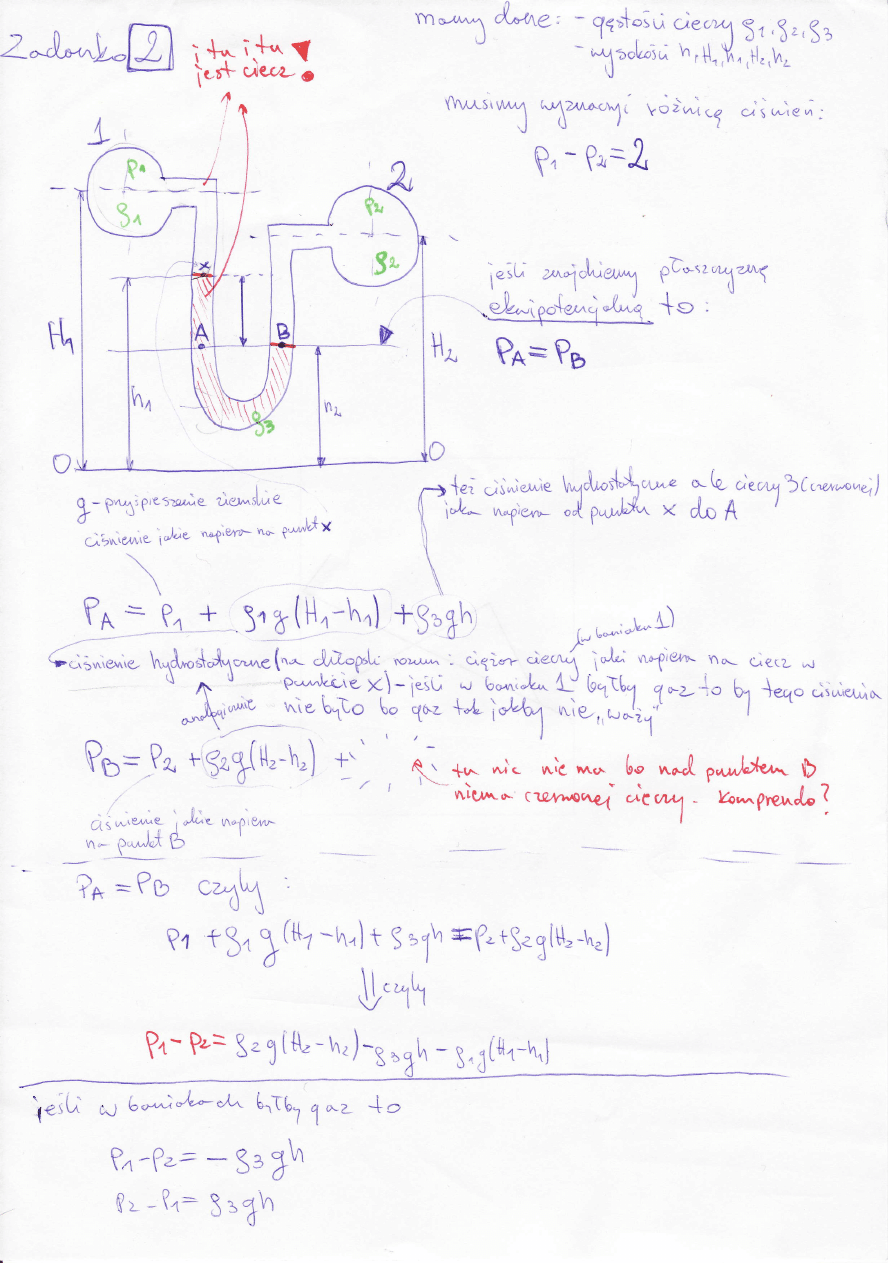 Zadanko 2
i tu i tu
jest ciecz!
mamy dane: - gęstości cieczy ρ1, ρ2, ρ3
- wysokości h, H1, h1, H2, h2
musimy wyznaczyć różnicę ciśnień:
p1 - p2 = ?
1
p1
ρ1
2
p2
ρ2
x
A
B
H1
h1
h2
H2
ρ3
O
O
jeśli znajdziemy płaszczyznę
ekwipotencjalną to:
PA = PB
g - przyśpieszenie ziemskie
ciśnienie jakie napiera na punkt x
też ciśnienie hydrostatyczne ale cieczy 3 (czerwonej)
jaka napiera od punktu x do A
PA = P1 + ρ1g(H1-h1) + ρ3gh
(w baniaku 1)
ciśnienie hydrostatyczne (na chłopski rozum: ciężar cieczy jaki napiera na ciecz w
punkcie x) - jeśli w baniaku 1 byłby gaz to by tego ciśnienia
nie było bo gaz tak jakby nie „waży”
analogicznie
PB = P2 + ρ2g(H2-h2) +
tu nic nie ma bo nad punktem B
niema czerwonej cieczy. Komprendo?
ciśnienie jakie napiera
na punkt B
PA = PB czyly :
p1 + ρ1g(H1-h1) + ρ3gh = p2 + ρ2g(H2-h2)
czyly
p1 - p2 = ρ2g(H2-h2) - ρ3gh - ρ1g(H1-h1)
jeśli w baniakach byłby gaz to
p1 - p2 = - ρ3gh
p2 - p1 = ρ3gh